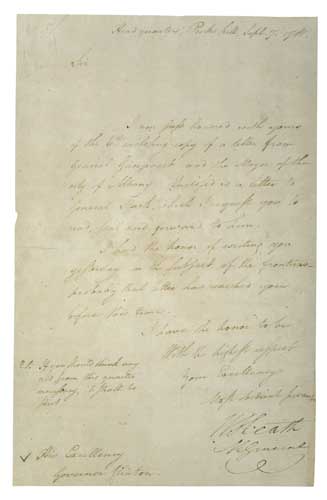 Head quarters, Peeks kill Sept. 7. 1781
Sir
I am just honored with yours
of the 6th inclosing copy of a letter from
General Gansevoort and the Mayor of the
city of Albany. Inclosed is a letter to
General Stark, which I request you to
read, seal and forward to him.
I had the honor of writing you
yesterday on the subject of the frontiers
probably that letter has reached you
before this time.
I have the honor to be
With the highest respect
Your Excellency
Most obedient servant
W Heath
M General
P.S. If you should think any
aid from this quarter
necessary, it shall be
sent
His Excellency
Governor Clinton